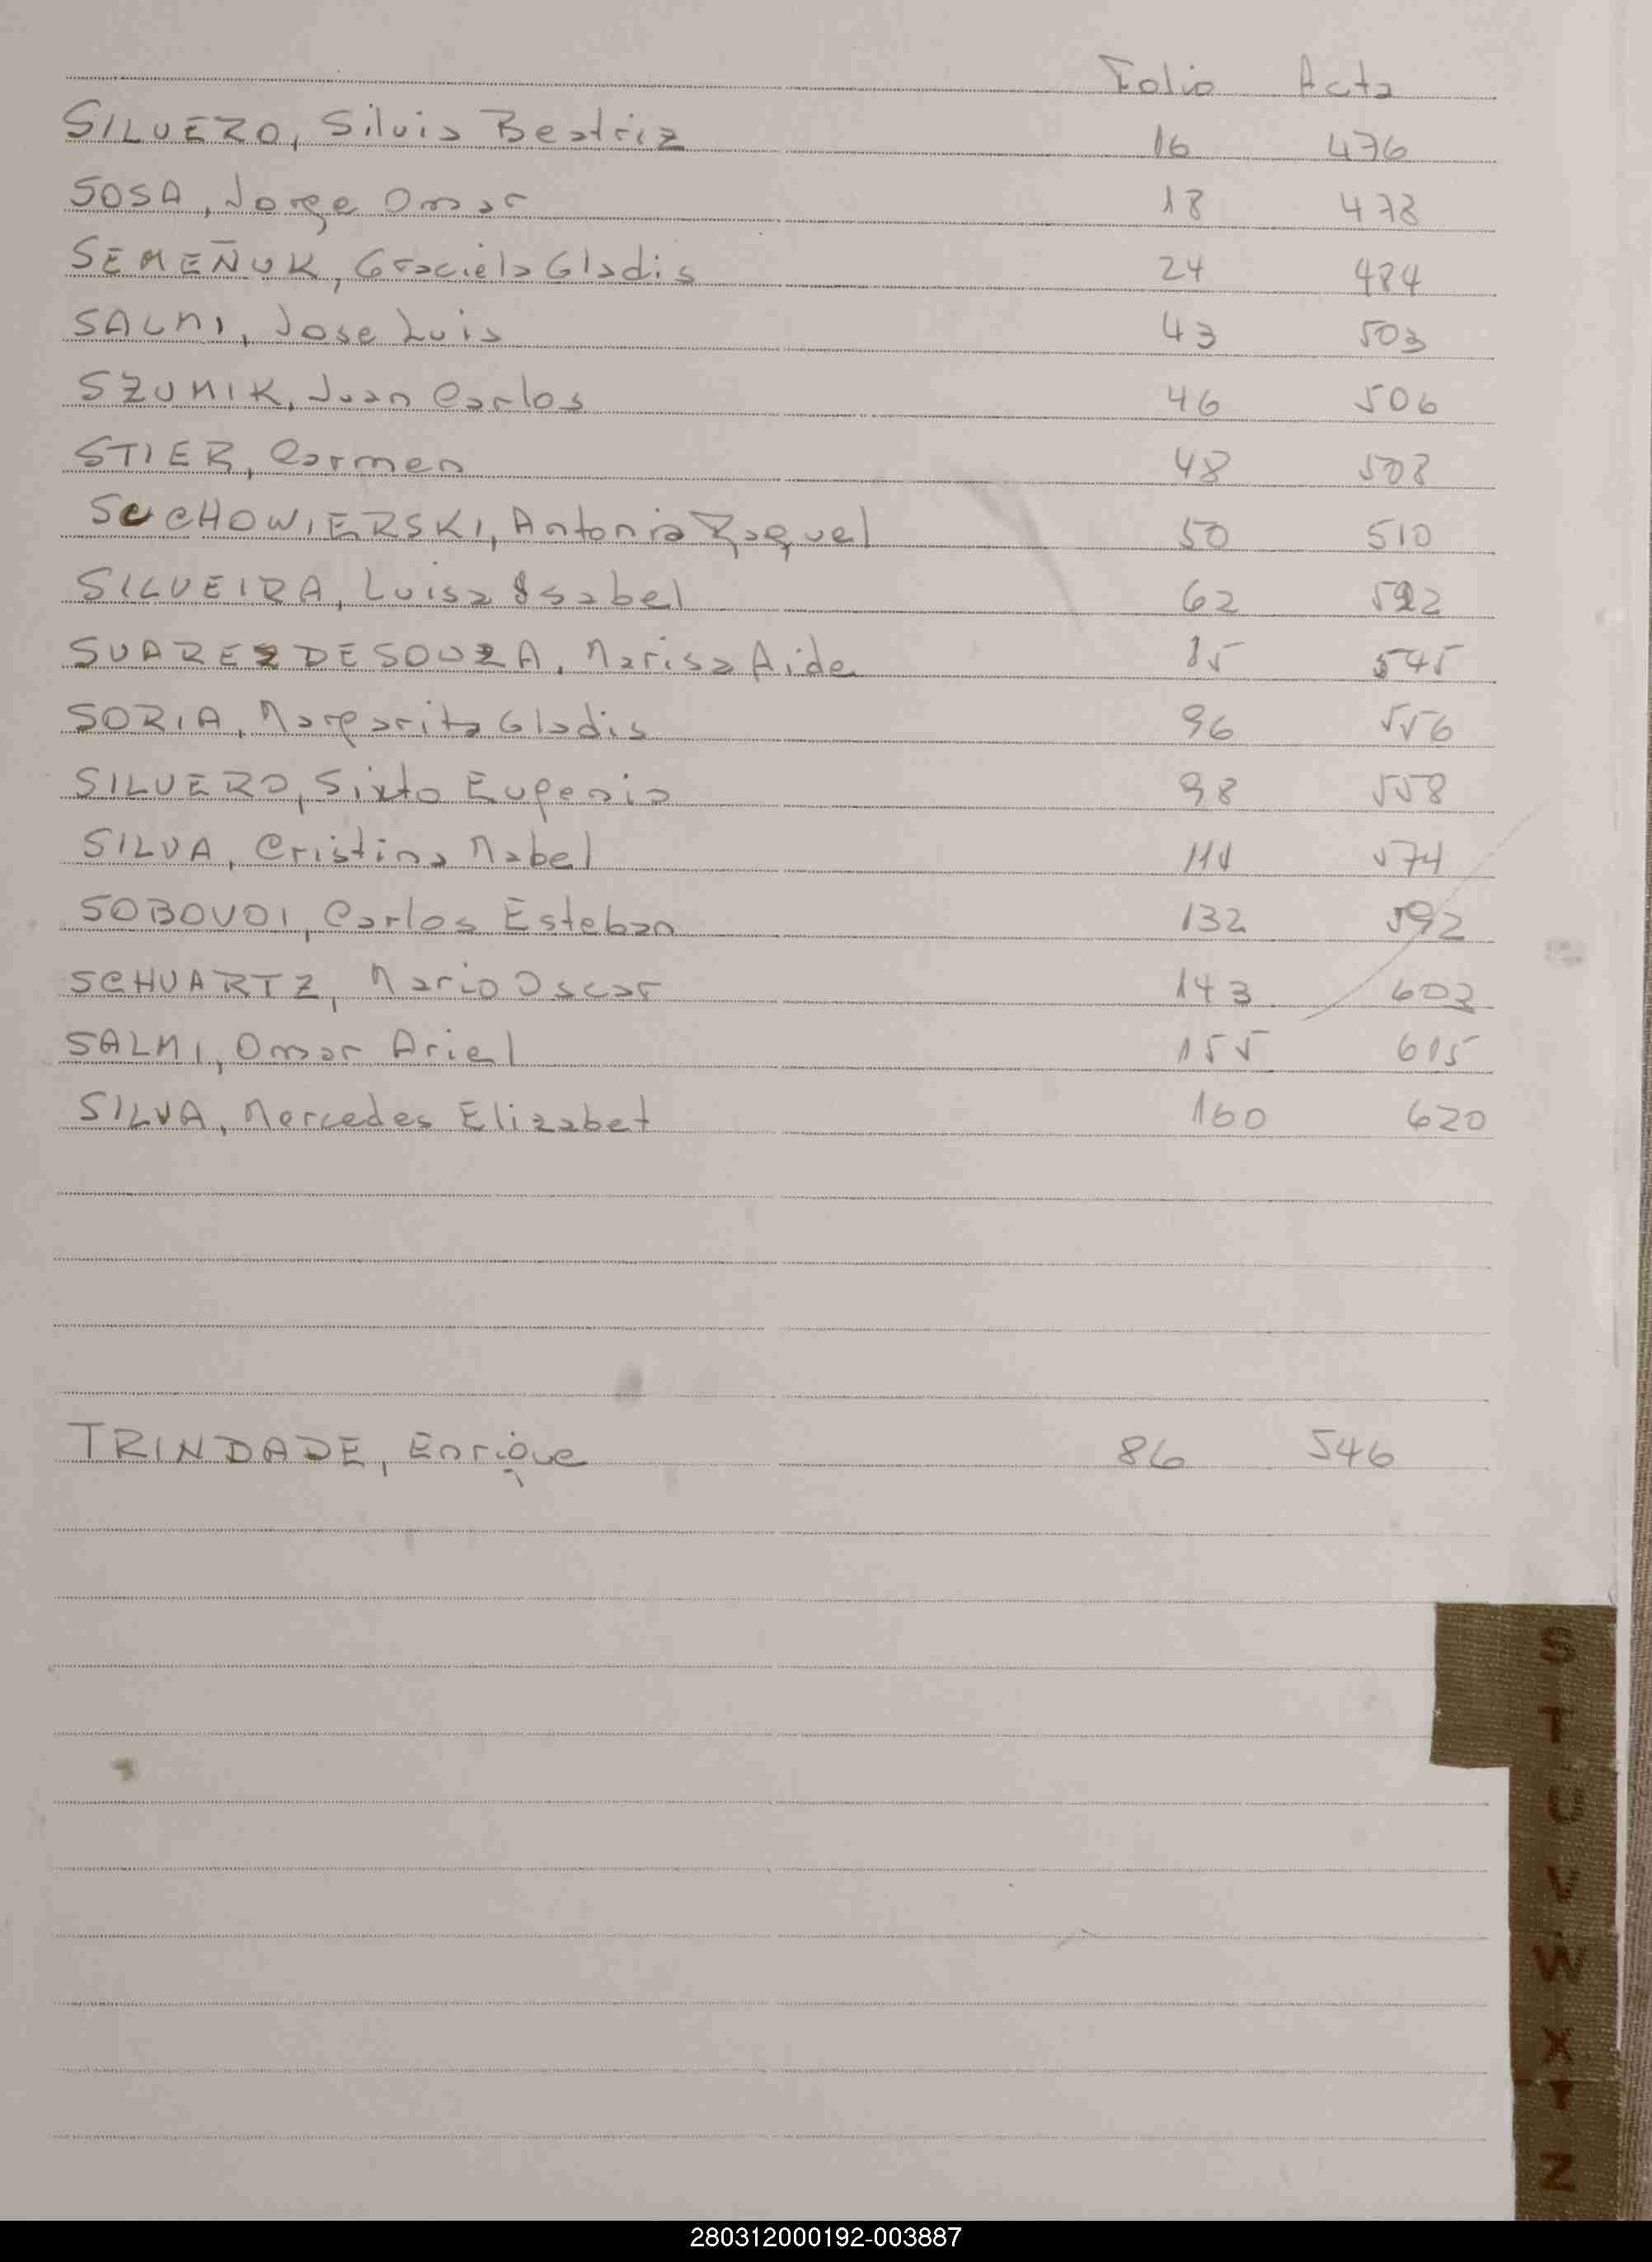 Folio Acta
SILVERO, Silvia Beatriz 16 476
SOSA, Jorge Omar 18 478
SEMEÑUK, Graciela Gladis 24 484
SALMI, Jose Luis 43 503
SZUMIK, Juan Carlos 46 506
STIER, Carmen 48 508
SUCHOWIERSKI, Antonia Raquel 50 510
SILVEIRA, Luisa Isabel 62 522
SUAREZ DE SOUZA, Marisa Aide 85 545
SORIA, Margarita Gladis 96 556
SILVERO, Sixto Eugenio 98 558
SILVA, Cristina Mabel 114 574
SOBOVOI, Carlos Esteban 132 592
SCHVARTZ, Mario Oscar 143 603
SALMI, Omar Ariel 155 615
SILVA, Mercedes Elizabet 160 620
TRINDADE, Enrique 86 546
S
T
U
V
W
X
Y
Z
280312000192-003887